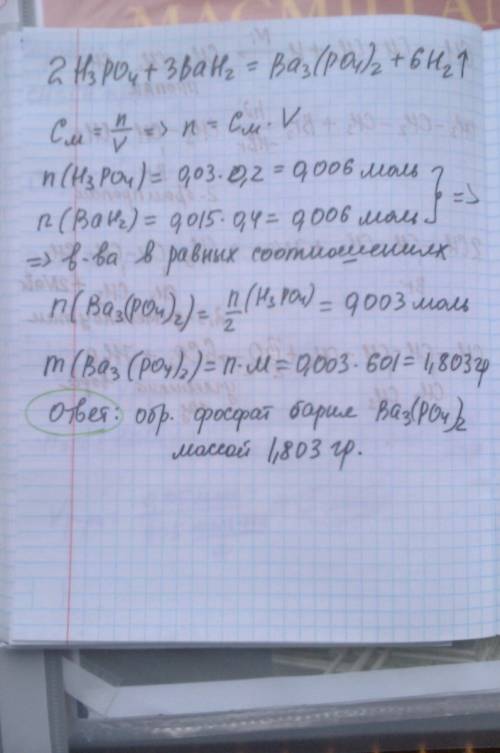 2H₃PO₄ + 3BaH₂ = Ba₃(PO₄)₂ + 6H₂↑
Cм = n/V => n = Cм · V
n(H₃PO₄) = 0,03 · 0,2 = 0,006 моль } =>
n(BaH₂) = 0,015 · 0,4 = 0,006 моль
=> в-ва в равных соотношениях
n(Ba₃(PO₄)₂) = n/2 (H₃PO₄) = 0,003 моль
m(Ba₃(PO₄)₂) = n · M = 0,003 · 601 = 1,803 гр
Ответ: обр. фосфат бария Ba₃(PO₄)₂
массой 1,803 гр.